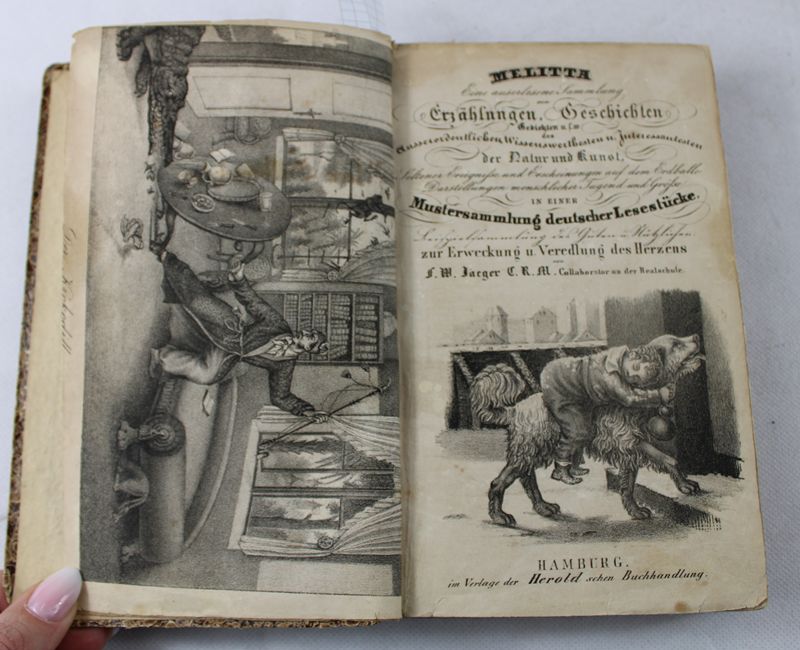 MELITTA
Eine auserlesene Sammlung
von
Erzählungen, Geschichten
Gedichten u. s. w.
des
Ausserordentlichen Wissenswerthesten u. Interessantesten
der Natur und Kunst,
seltener Ereignisse und Erscheinungen auf dem Erdballe
Darstellungen menschlicher Tugend und Größe
IN EINER
Mustersammlung deutscher Lesestücke.
Beispielsammlung des Guten u. Nützlichen.
zur Erweckung u. Veredlung des Herzens
von
F. W. Jaeger C. R. M. Collaborator an der Realschule.
HAMBURG.
im Verlage der Herold'schen Buchhandlung.